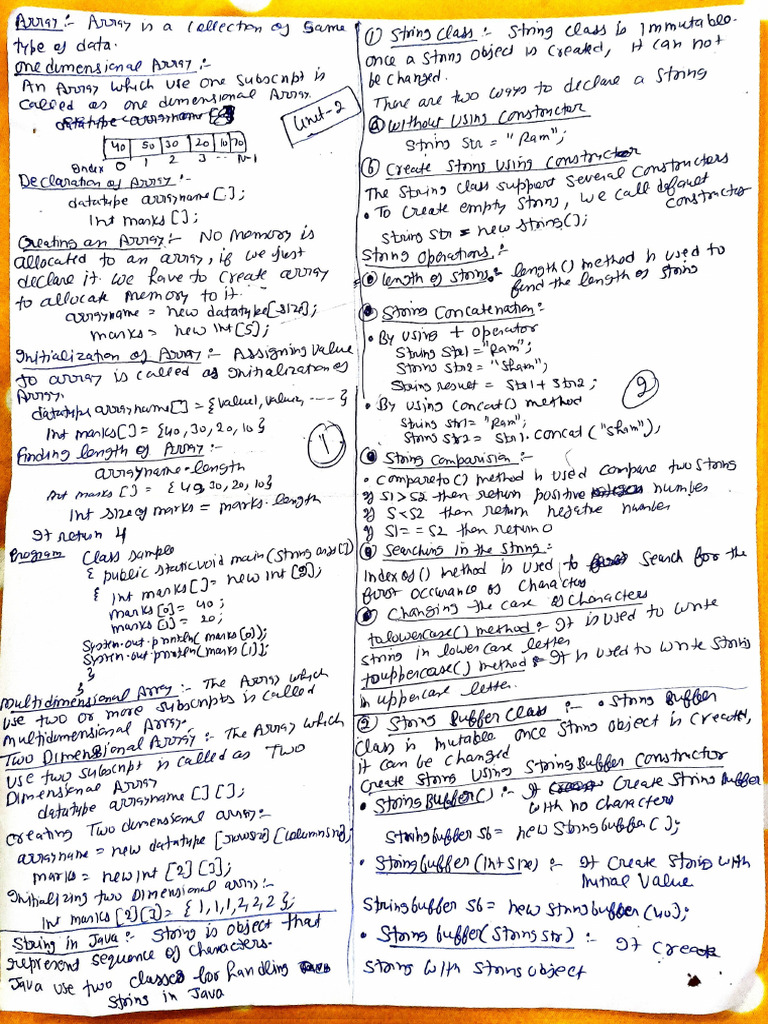 Array:- Array is a Collection of Same
type of data.
One dimensional Array:-
An Array which use one subscript is
called as one dimensional Array.
Unit-2
40 50 30 20 10 70
Index 0 1 2 3 ... N-1
Declaration of Array:-
datatype arrayname[];
Int marks[];
Creating an Array:- No memory is
allocated to an array, if we just
declare it. we have to create array
to allocate memory to it.
arrayname = new datatype[size];
marks = new int[5];
Initialization of Array:- Assigning value
to array is called as initialization of
Array.
datatype arrayname[] = {value1, value, ----}
Int marks[] = {40, 30, 20, 10}
Finding length of Array:-
arrayname.length
Int marks[] = {40, 30, 20, 10}
Int size of marks = marks.length
It return 4
1
Program Class Sample
{ public static void main (String args[])
{ Int marks[] = new int [2];
marks[0] = 40;
marks[1] = 20;
System.out.println(marks[0]);
System.out.println(marks[1]);
}
}
Multidimensional Array:- The Array which
use two or more subscripts is called
Multidimensional Array.
Two Dimensional Array:- The Array which
use two subscript is called as Two
Dimensional Array
datatype arrayname[][];
Creating Two dimensional array:-
arrayname = new datatype [rowsize][columnsize];
marks = new int [2][3];
Initializing two Dimensional array:-
Int marks[2][3] = {1,1,1,2,2,2};
String in Java:- String is object that
represent sequence of characters.
Java use two classes for handling
string in Java
① String Class:- String class is Immutable.
once a String object is created, it can not
be changed.
There are two ways to declare a String
ⓐ without Using Constructor
String Str = "Ram";
ⓑ Create String Using Constructor
The String class support several constructors
• To create empty string, we call default
constructor
String str = new String();
String operations:-
length of string:- length() method is used to
find the length of string
String Concatenation:-
• By using + operator
String Str1 = "Ram";
String Str2 = "Sham";
String result = Str1 + Str2;
2
• By using Concat() method
String Str1 = "Ram";
String Str2 = Str1.concat("Sham");
String Comparision:-
• compareto() method is used compare two string
if S1>S2 then return positive number
if S<S2 then return negative number
if S1==S2 then return 0
Searching in the string:-
Indexof() method is used to search for the
first occurance of Character
Changing the case of Characters
tolowercase() method:- It is used to write
string in lower case letter
touppercase() method:- It is used to write string
in uppercase letter.
② String Buffer Class:- • String Buffer
class is mutable once String object is created,
it can be changed
Create String Using StringBuffer Constructor
• StringBuffer():- It Create String Buffer
with no characters
Stringbuffer sb = new Stringbuffer();
• Stringbuffer(int size):- It Create String with
Initial Value
Stringbuffer sb = new Stringbuffer(40);
• String buffer(String str):- It Create
string with String object